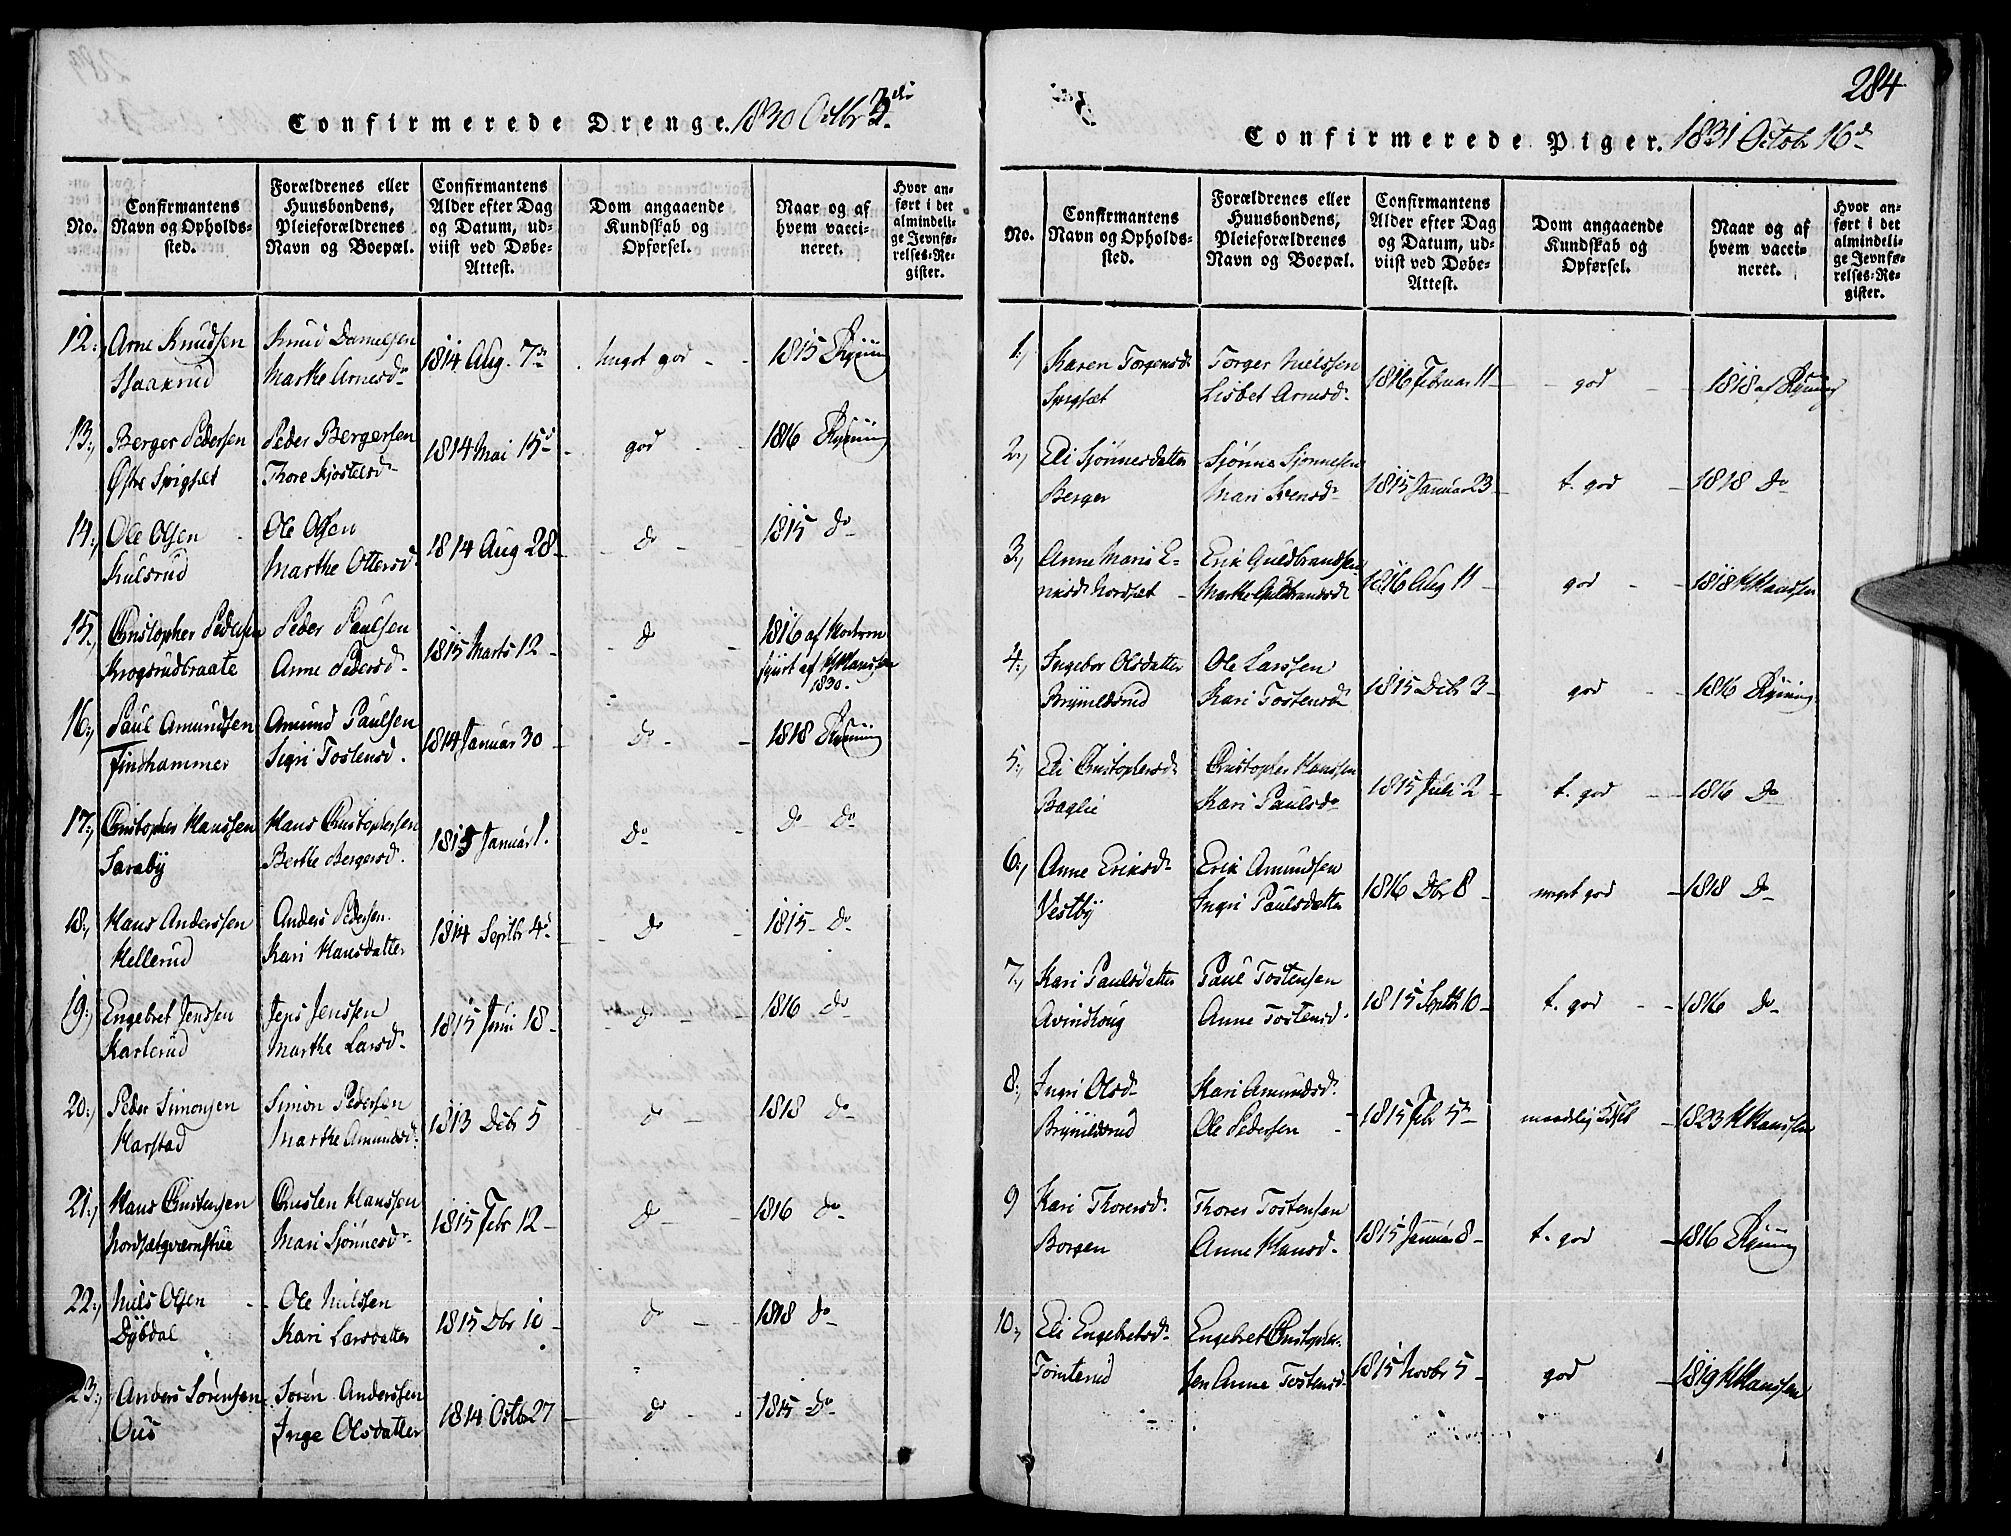 Confirmerede Drenge. 1830 Octbr 3die
No.
Confirmantens Navn og Opholdssted.
Forældrenes eller Huusbondens, Pleieforældrenes Navn og Boepæl.
Confirmantens Alder efter Dag og Datum, udviist ved Døbe-Attest.
Dom angaaende Kundskab og Opførsel.
Naar og af hvem vaccineret.
Hvor anført i det almindelige Jevnførelses-Register.
12., Arne Knudsen Knud Danielsen 1814 Aug. 7de meget god 1815 Ryning
Haakrud Marthe Arnesdr
13., Berger Pedersen Peder Bergersen 1814 Mai 15d god 1816 Ryning
Østre Spigset Thore Kjostelsdr
14., Ole Olsen Ole Olsen 1814 Aug 28 do 1815 do
Kulsrud Marthe Ottersdr
15., Christopher Pedersen Peder Paulsen 1815 Marts 12 do 1816 af
Krogsrudbraate Anne Pedersdr af H Hanssen
1830.
16., Paul Amundsen Amund Paulsen 1814 Januar 30 do 1818 Ryning
Findhammer Sigri Tostensd.
17., Christopher Hanssen Hans Christophersen 1815 Januar 1. do do do
Saraby Berthe Bergersd.
18., Hans Anderssen Anders Pedersen 1814 Septbr 4d do 1815 do
Hellerud Kari Hansdatter
19., Engebret Jenssen Jens Jenssen 1815 Juni 18 do 1816 do
Karterud Marthe Larsdr
20., Peder Simonsen Simon Pedersen 1813 Debr 5 do 1818 do
Harstad Marthe Amundsdr
21., Hans Christensen Christen Hanssen 1815 Febr 12 do 1816 do
Nordsætqværnstue Mari Sjønnesdr
22., Nils Olsen Ole Nilssen 1815 Dbr 10 do 1818 do
Dybdal Kari Larsdatter
23., Anders Sørensen Søren Anderssen 1814 Octbr 27 do 1815 do
Ous Inge Olsdatter
284
Confirmerede Piger. 1831 Octobr 16de
No.
Confirmantens Navn og Opholdssted.
Forældrenes eller Huusbondens, Pleieforældrenes Navn og Boepæl.
Confirmantens Alder efter Dag og Datum, udviist ved Døbe-Attest.
Dom angaaende Kundskab og Opførsel.
Naar og af hvem vaccineret.
Hvor anført i det almindelige Jevnførelses-Register.
1., Karen Torgersdr Torger Nielssen 1816 Februar 11 god 1818 af Ryning
Spigset Lisbet Arnesdr
2., Eli Sjønnesdatter Sjønne Sjønnesen 1815 Januar 23 t. god 1818 do
Berger Mari Svensdr
3., Anne Maris E- Erik Guldbrandsen 1816 Aug 11 god 1818 H Hanssen
riksdr Nordset Marthe Guldbrandsdr
4., Ingebor Olsdatter Ole Larssen 1815 Debr 3 god 1816 Ryning
Brynildsrud Kari Tostensdr
5., Eli Christophersdr Christopher Hanssen 1815 Juli 2 t. god 1816 do
Baglie Kari Paulsdr
6., Anne Eriksdr Erik Amundsen 1816 Dbr 8 meget god 1818 do
Vestby Ingri Paulsdatter
7., Kari Paulsdatter Paul Tostensen 1815 Septbr 10 t. god 1816 do
Avindhoug Anne Tostensd.
8., Ingri Olsdr Kari Amundsdr 1815 Febr 5te maadelig 1823 H Hanssen
Brynildsrud Ole Pedersen
9 Kari Thoresdr Thores Tostensen 1815 Januar 8 t. god 1816 Ryning
Borgen Anne Hansdr
10., Eli Engebretsdr Engebret Christopher- 1815 Novbr 5 god 1819 H Hanssen
Tomterud sen Anne Tostensdr